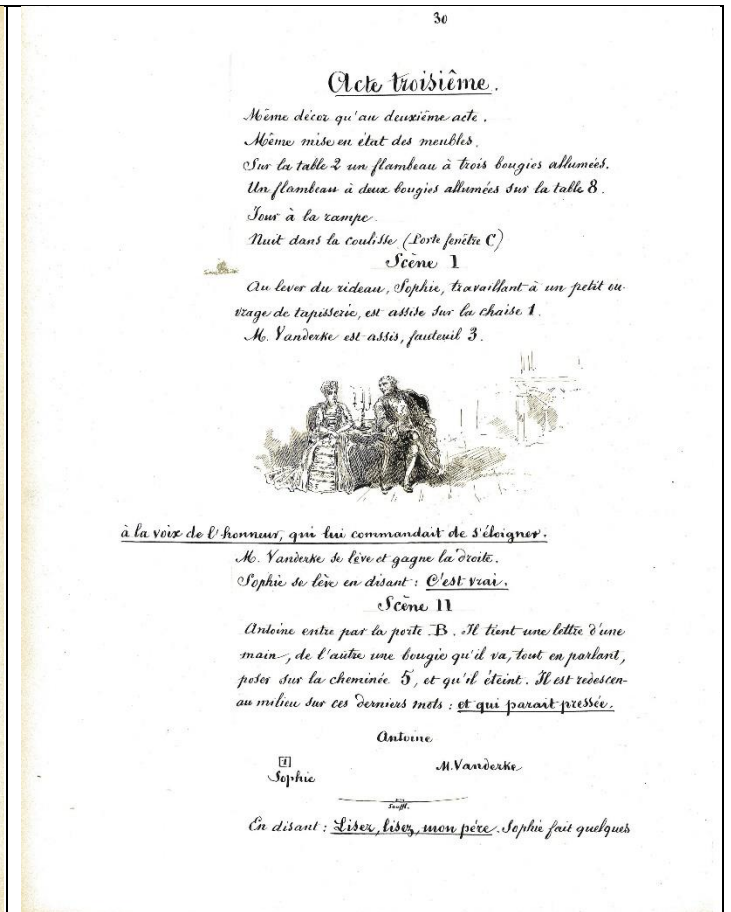 30
Acte troisième.
Même décor qu'au deuxième acte.
Même mise en état des meubles.
Sur la table 2 un flambeau à trois bougies allumées.
Un flambeau à deux bougies allumées sur la table 8.
Jour à la rampe.
Nuit dans la coulisse (Porte fenêtre C)
Scène 1
Au lever du rideau, Sophie, travaillant à un petit ou-
vrage de tapisserie, est assise sur la chaise 1.
M. Vanderke est assis, fauteuil 3.
à la voix de l'honneur, qui lui commandait de s'éloigner.
M. Vanderke se lève et gagne la droite.
Sophie se lève en disant: C'est vrai.
Scène 11
Antoine entre par la porte B. Il tient une lettre d'une
main, de l'autre une bougie qu'il va, tout en parlant,
poser sur la cheminée 5, et qu'il éteint. Il est redescen-
au milieu sur ces derniers mots: et qui parait pressée.
Antoine
1
Sophie
M. Vanderke
Souffl.
En disant: Lisez, lisez, mon père. Sophie fait quelques